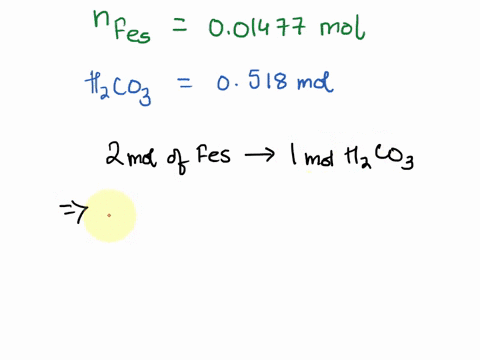 n Fes = 0.01477 mol
H₂CO₃ = 0.518 mol
2 mol of Fes → 1 mol H₂CO₃
⇒